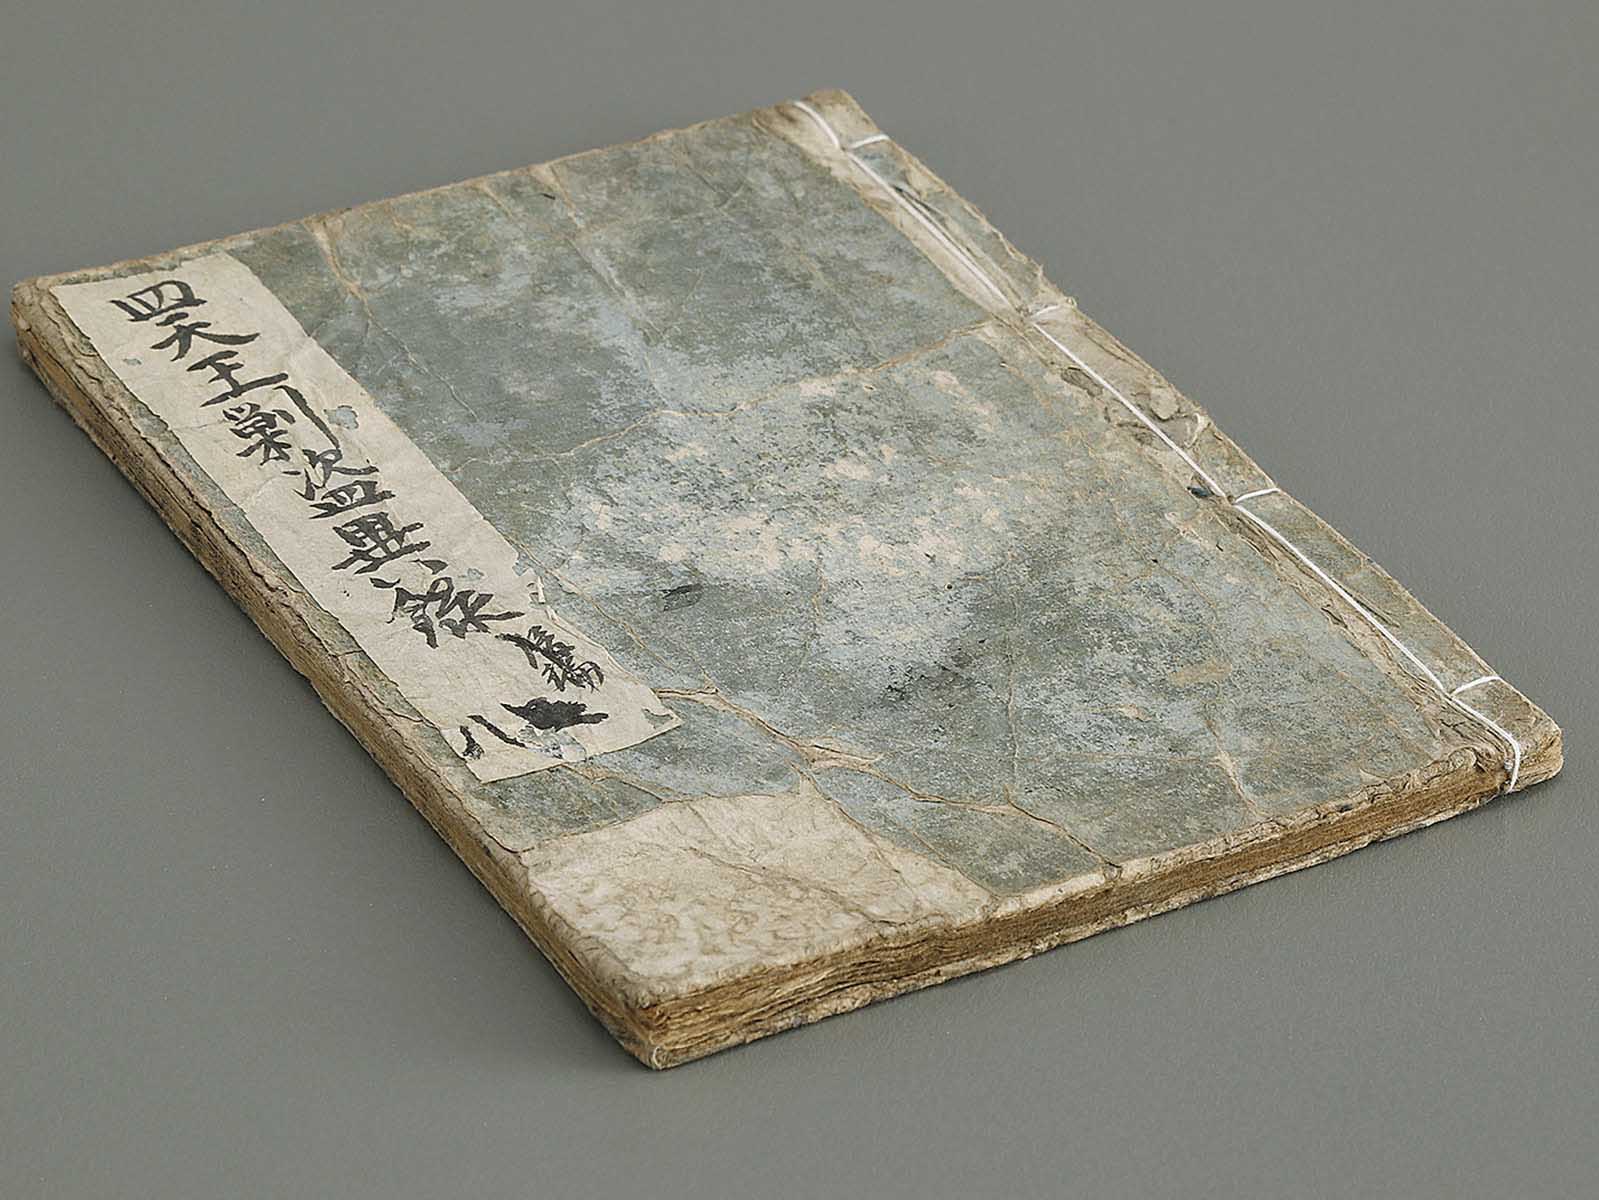 四天王剿盗異録 後編
八